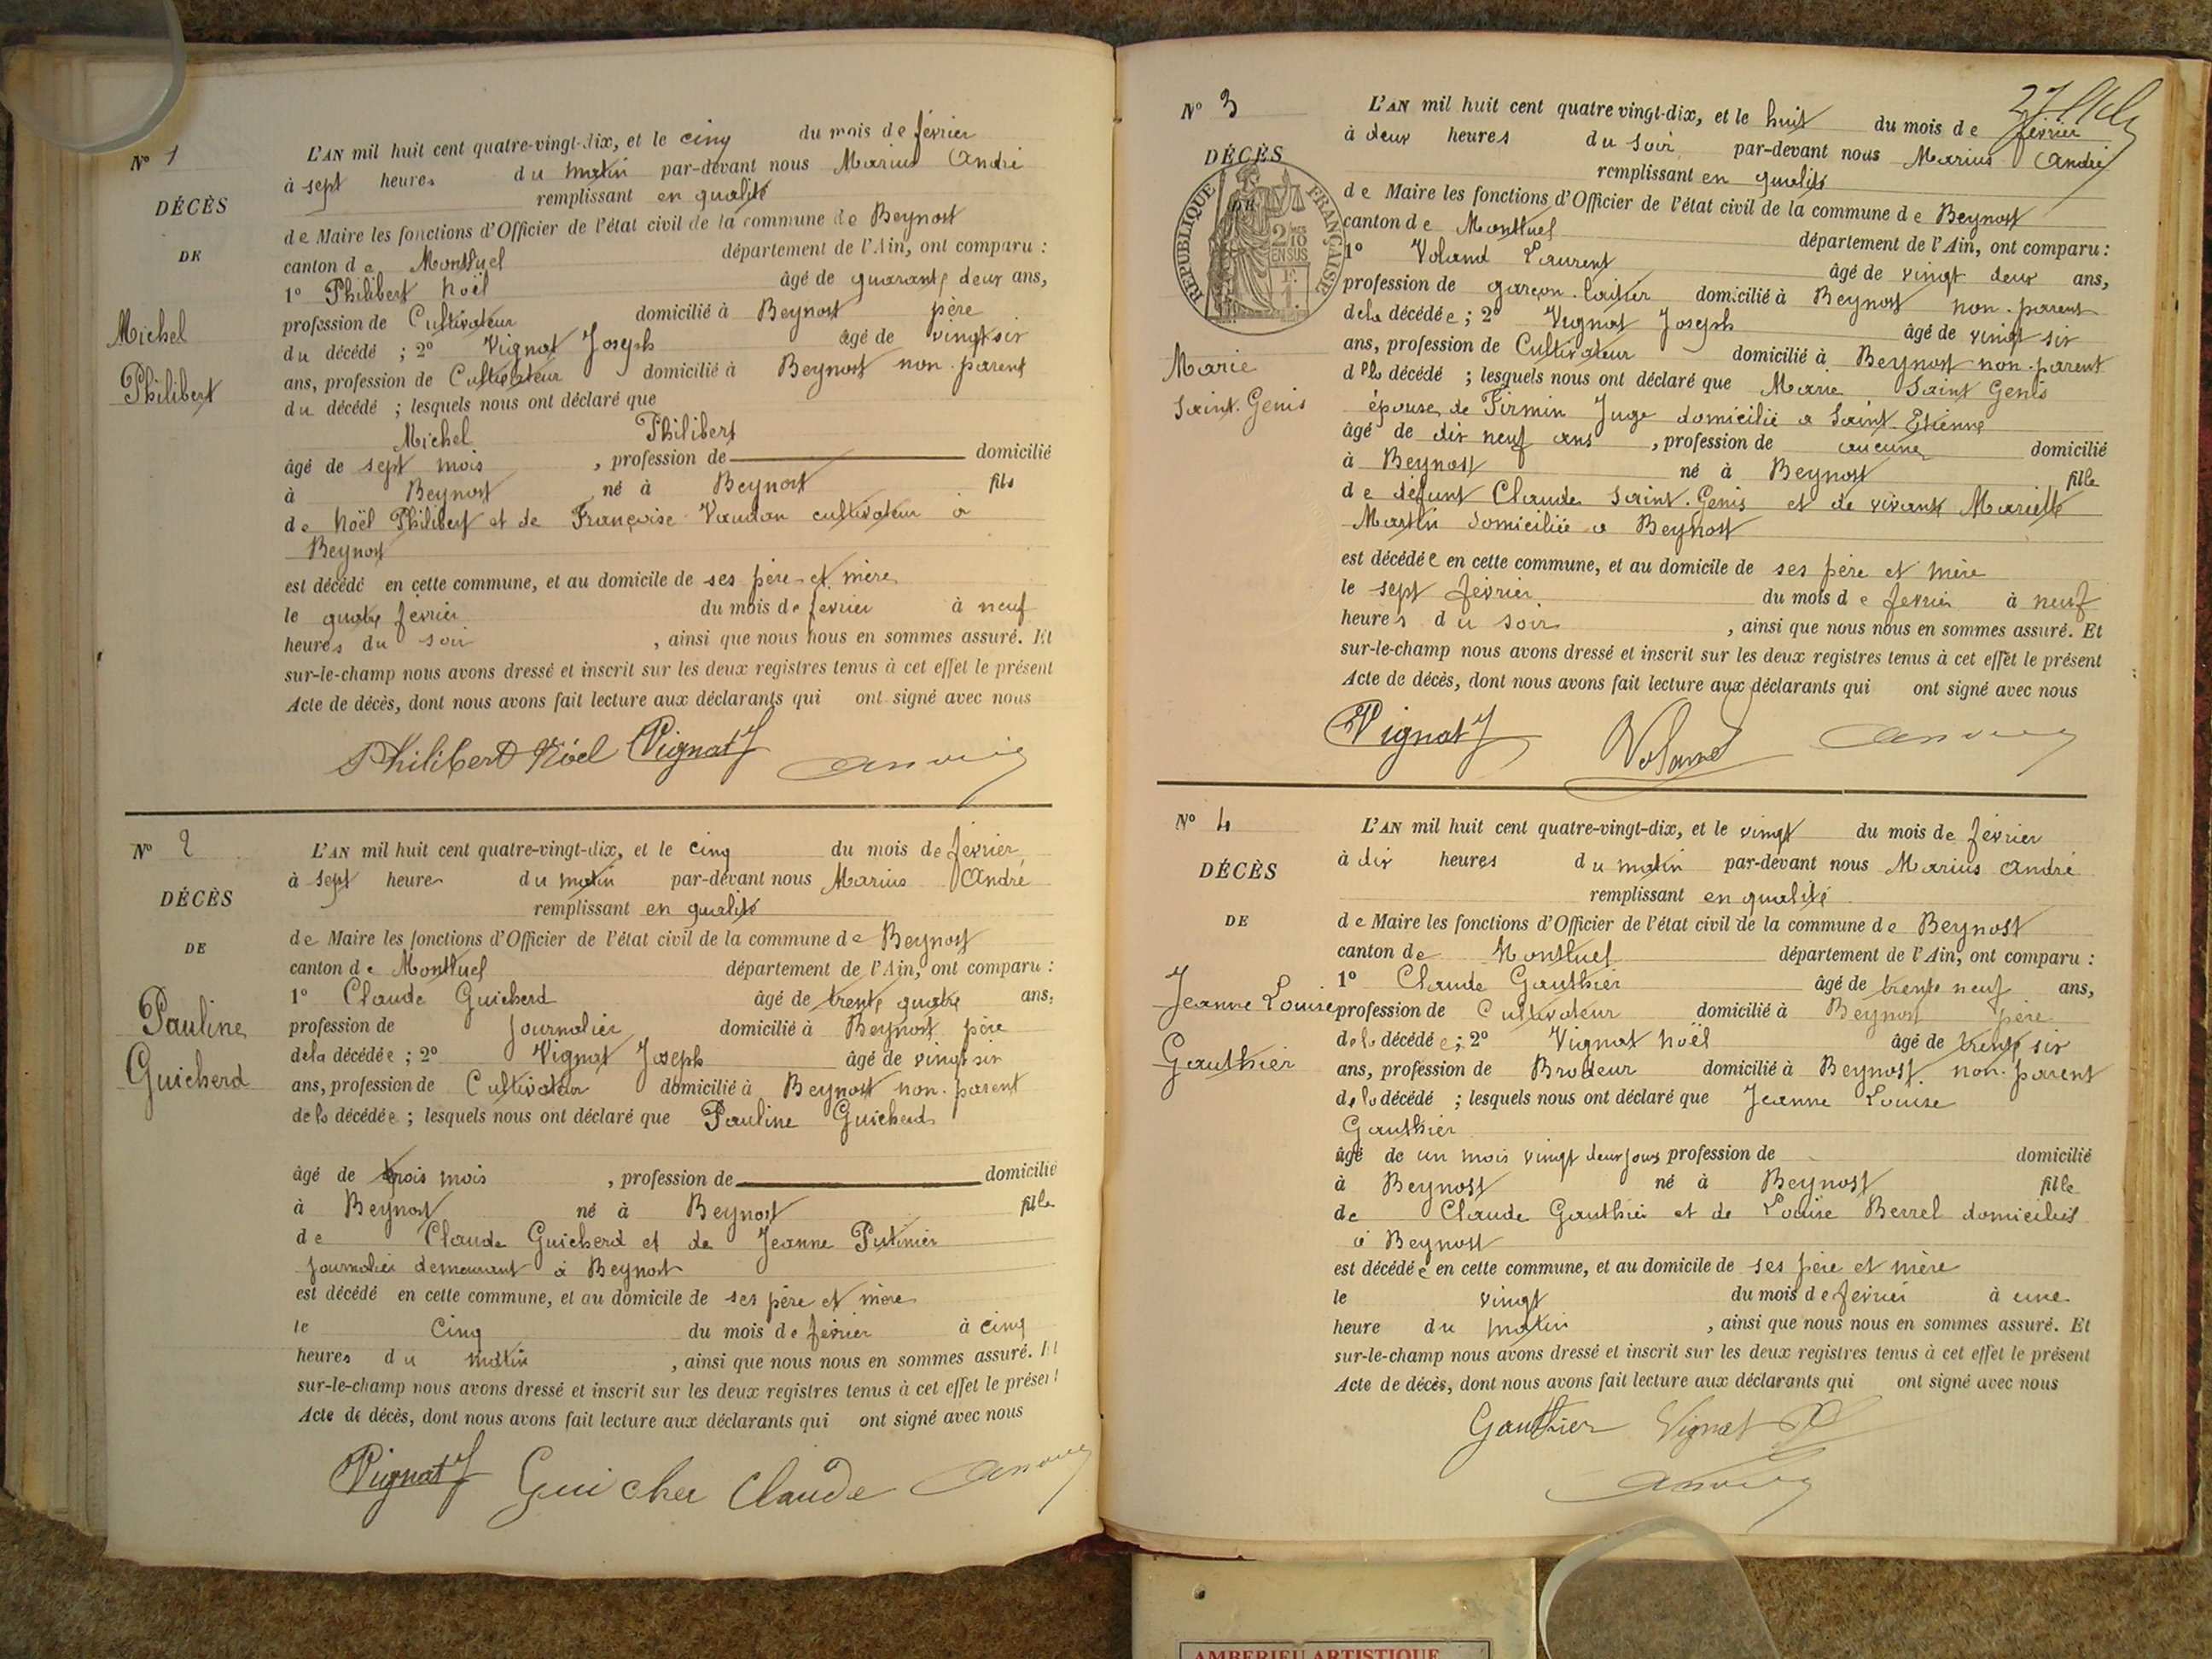 N° 1
DÉCÈS
DE
Michel
Philibert
L'AN mil huit cent quatre-vingt-dix, et le cinq du mois de février
à sept heures du matin par-devant nous Marius André
remplissant en qualité
de Maire les fonctions d'Officier de l'état civil de la commune de Beynost
canton de Montluel département de l'Ain, ont comparu :
1° Philibert Noël âgé de quarante deux ans,
profession de Cultivateur domicilié à Beynost père
du décédé ; 2° Vignat Joseph âgé de vingt six
ans, profession de Cultivateur domicilié à Beynost non parent
du décédé ; lesquels nous ont déclaré que
Michel Philibert
âgé de sept mois , profession de domicilié
à Beynost né à Beynost fils
de Noël Philibert et de Françoise Vaudan cultivateur à
Beynost
est décédé en cette commune, et au domicile de ses père et mère
le quatre février du mois de février à neuf
heures du soir , ainsi que nous nous en sommes assuré. Et
sur-le-champ nous avons dressé et inscrit sur les deux registres tenus à cet effet le présent
Acte de décès, dont nous avons fait lecture aux déclarants qui ont signé avec nous
Philibert Nöel Vignat J
N° 2
DÉCÈS
DE
Pauline
Guicherd
L'AN mil huit cent quatre-vingt-dix, et le cinq du mois de février
à sept heures du matin par-devant nous Marius André
remplissant en qualité
de Maire les fonctions d'Officier de l'état civil de la commune de Beynost
canton de Montluel département de l'Ain, ont comparu :
1° Claude Guicherd âgé de trente quatre ans,
profession de journalier domicilié à Beynost père
dela décédée ; 2° Vignat Joseph âgé de vingt six
ans, profession de Cultivateur domicilié à Beynost non parent
de la décédée ; lesquels nous ont déclaré que Pauline Guicherd
âgé de trois mois , profession de domicilié
à Beynost né à Beynost fille
de Claude Guicherd et de Jeanne Putinier
journalier demeurant à Beynost
est décédé en cette commune, et au domicile de ses père et mère
le Cinq du mois de février à cinq
heures du matin , ainsi que nous nous en sommes assuré. Et
sur-le-champ nous avons dressé et inscrit sur les deux registres tenus à cet effet le présent
Acte de décès, dont nous avons fait lecture aux déclarants qui ont signé avec nous
Vignat J Guicher Claude
N° 3
DÉCÈS
RÉPUBLIQUE FRANÇAISE
2/10 EN SUS
Marie
Saint-Genis
L'AN mil huit cent quatre vingt-dix, et le huit du mois de février
à deux heures du soir par-devant nous Marius André
remplissant en qualité
de Maire les fonctions d'Officier de l'état civil de la commune de Beynost
canton de Montluel département de l'Ain, ont comparu :
1° Voland Laurent âgé de vingt deux ans,
profession de garçon laitier domicilié à Beynost non parent
dela décédée ; 2° Vignat Joseph âgé de vingt six
ans, profession de Cultivateur domicilié à Beynost non parent
de la décédé ; lesquels nous ont déclaré que Marie Saint Genis
épouse de Firmin Juge domicilié a Saint-Etienne
âgé de dix neuf ans , profession de aucune domicilié
à Beynost né à Beynost fille
de défunt Claude Saint-Genis et de vivante Mariette
Martin domiciliée a Beynost
est décédée en cette commune, et au domicile de ses père et mère
le sept février du mois de février à neuf
heures du soir , ainsi que nous nous en sommes assuré. Et
sur-le-champ nous avons dressé et inscrit sur les deux registres tenus à cet effet le présent
Acte de décès, dont nous avons fait lecture aux déclarants qui ont signé avec nous
Vignat J Voland
N° 4
DÉCÈS
DE
Jeanne Louise
Gauthier
L'AN mil huit cent quatre-vingt-dix, et le vingt du mois de février
à dix heures du matin par-devant nous Marius André
remplissant en qualité
de Maire les fonctions d'Officier de l'état civil de la commune de Beynost
canton de Montluel département de l'Ain, ont comparu :
1° Claude Gauthier âgé de trente neuf ans,
profession de Cultivateur domicilié à Beynost père
de la décédée ; 2° Vignat Noël âgé de trente six
ans, profession de Brodeur domicilié à Beynost non parent
de la décédé ; lesquels nous ont déclaré que Jeanne Louise
Gauthier
âgé de un mois vingt deux jours profession de domicilié
à Beynost né à Beynost fille
de Claude Gauthier et de Louise Berrel domiciliés
à Beynost
est décédée en cette commune, et au domicile de ses père et mère
le vingt du mois de février à une
heure du matin , ainsi que nous nous en sommes assuré. Et
sur-le-champ nous avons dressé et inscrit sur les deux registres tenus à cet effet le présent
Acte de décès, dont nous avons fait lecture aux déclarants qui ont signé avec nous
Gauthier Vignat
AMBERIEU ARTISTIQUE